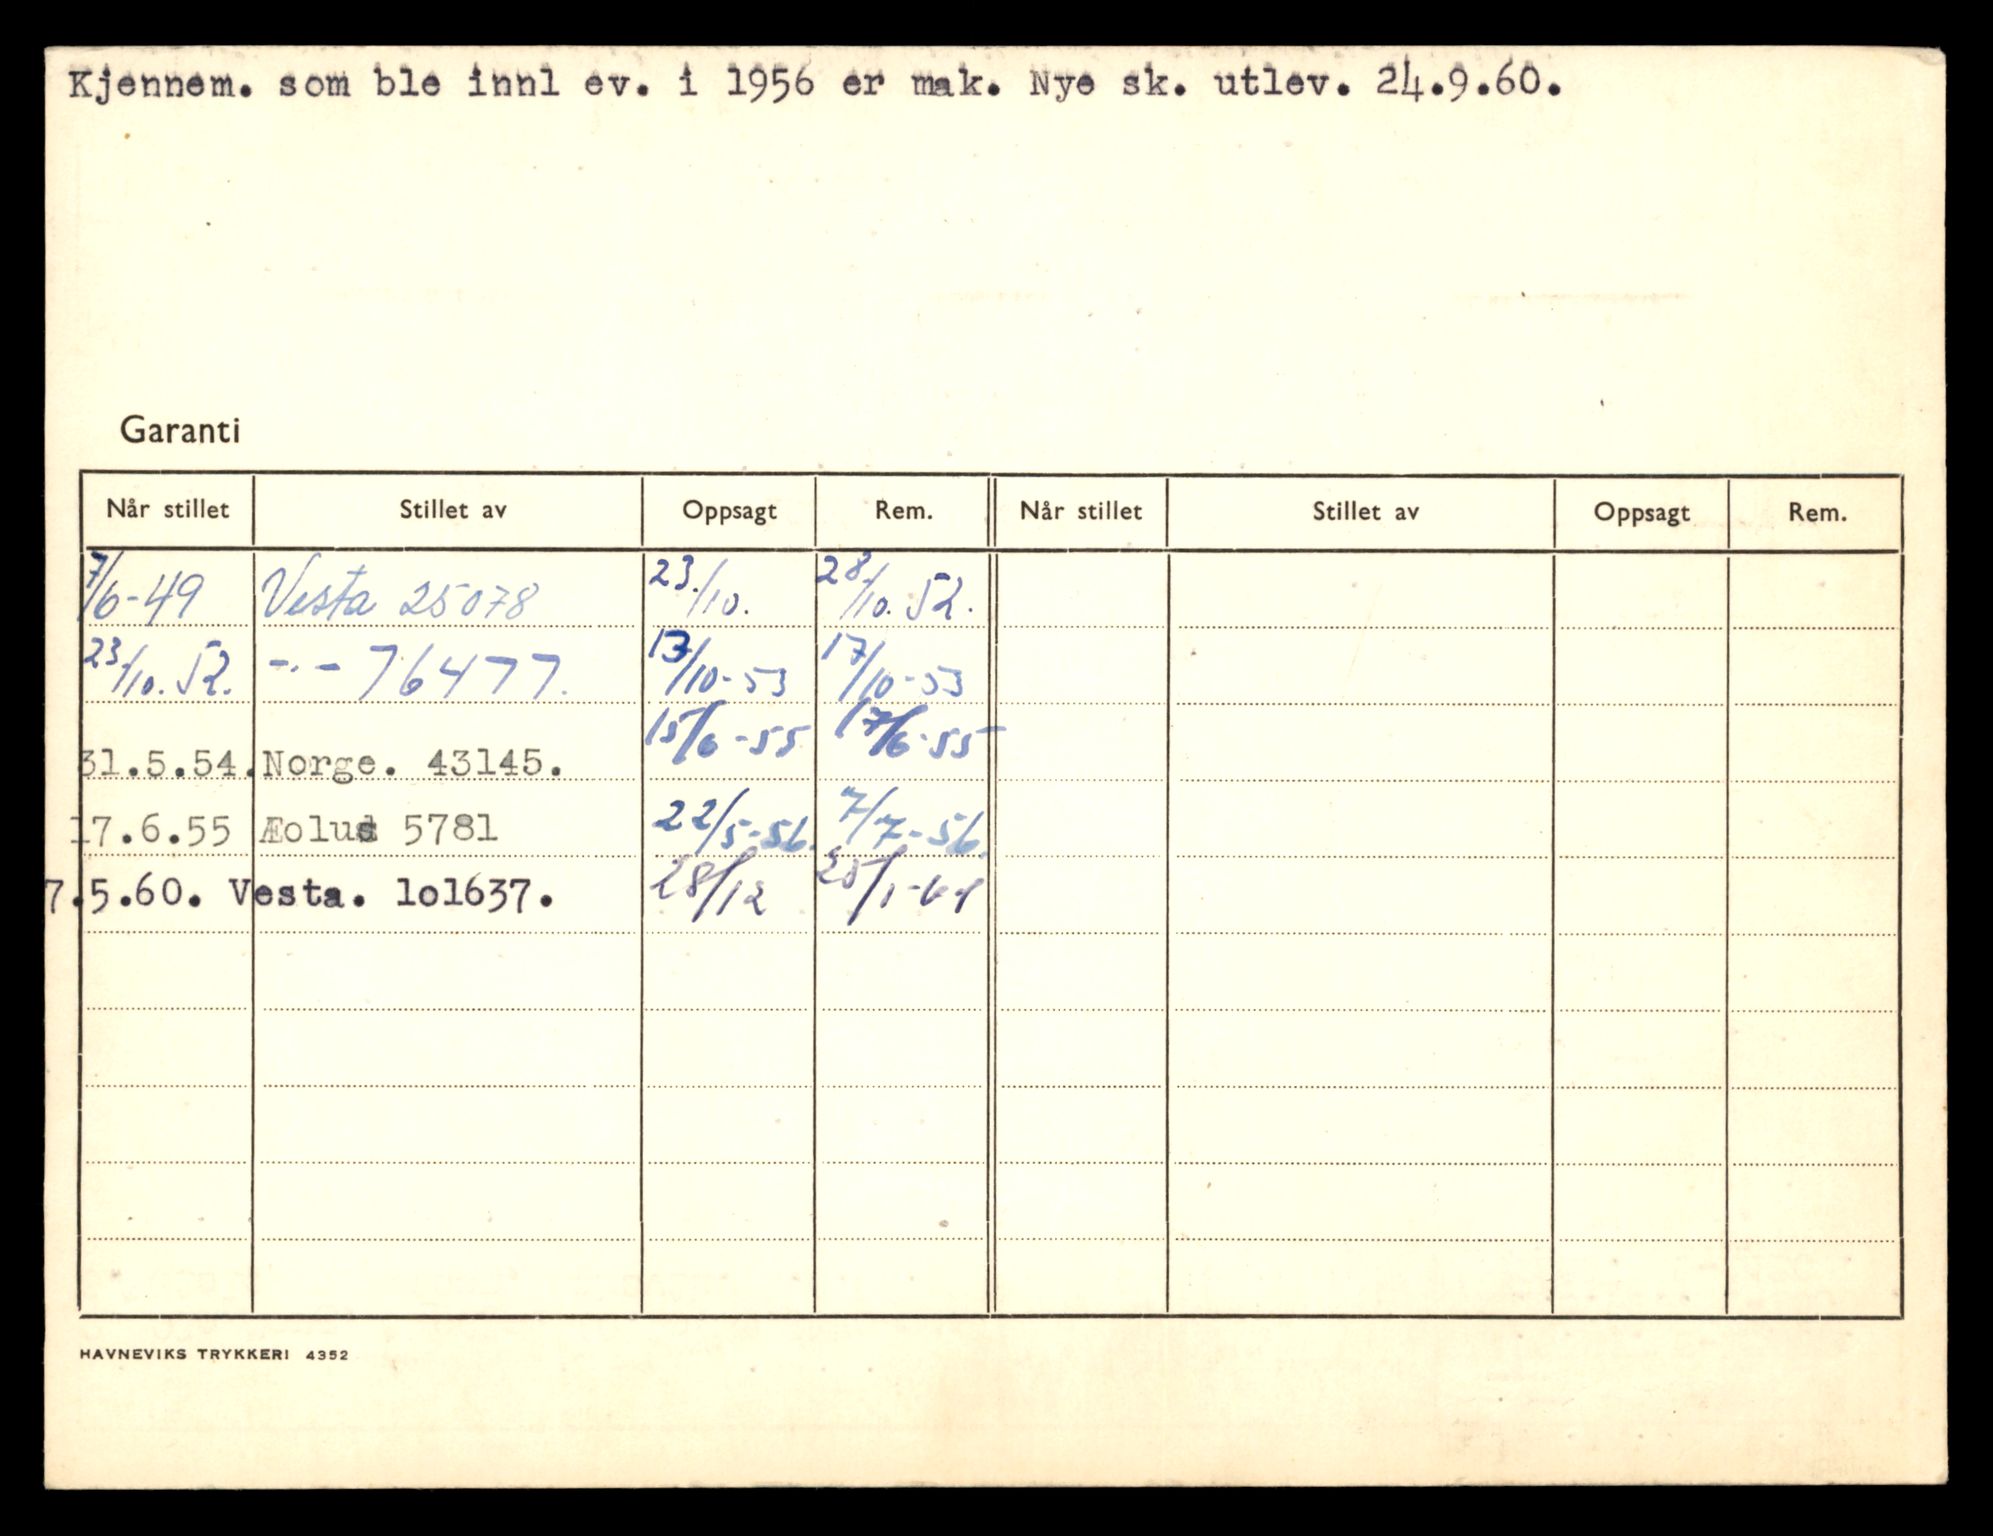 Kjennem. som ble innl ev. i 1956 er mak. Nye sk. utlev. 24.9.60.
Garanti
Når stillet Stillet av Oppsagt Rem. Når stillet Stillet av Oppsagt Rem.
7/6-49 Vesta 25078 23./10. 28/10. 52.
23./10. 52. -"- 76477. 13/10-53 17/10-53
31.5.54. Norge. 43145. 15/6-55 17/6-55
17.6.55 Æolus 5781 22/5-56. 7/7-56.
7.5.60. Vesta. 1o1637. 28/12 25/1-61
HAVNEVIKS TRYKKERI 4352